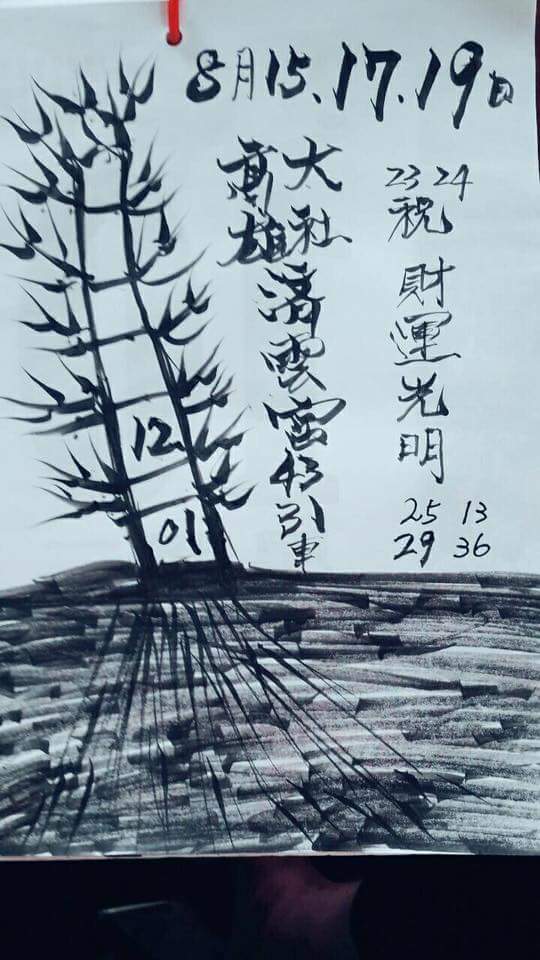 8月15.17.19日
23 24
祝財運光明
25 13
29 36
大社
高雄
雲宮43引車
12
01